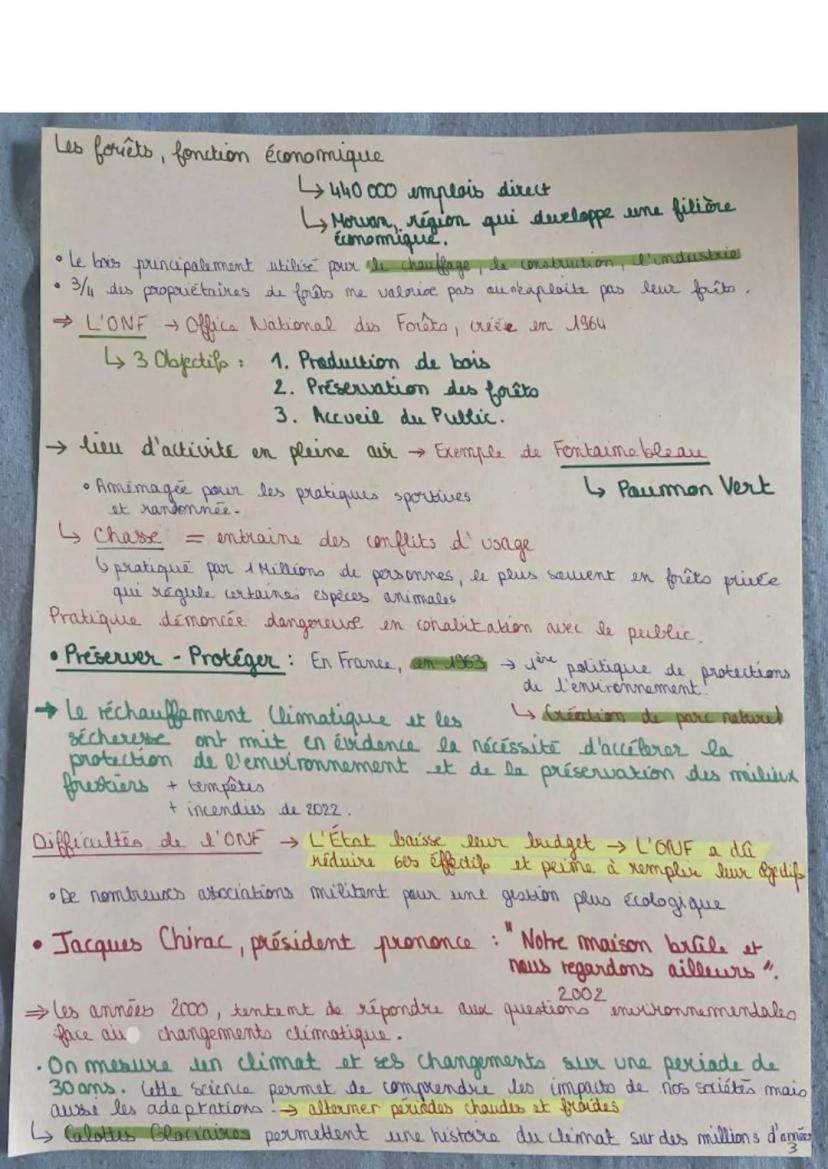 Les forêts, fonction économique
↳ 440 000 emplois direct
↳ Morvan, région qui developpe une filière
économique.
• Le bois principalement utilisé pour le chauffage, la construction, l'industrie
• 3/4 des propriétaires de forêts ne valorise pas ou n'exploite pas leur forêts.
⇒ L'ONF → Office National des Forêts, créée en 1964
↳ 3 Objectifs : 1. Production de bois
2. Préservation des forêts
3. Accueil du Public.
→ lieu d'activité en pleine air → Exemple de Fontainebleau
• Aménagée pour les pratiques sportives ↳ Poumon Vert
et randonnée.
↳ Chasse = entraine des conflits d'usage
↳ pratiqué par 1 Millions de personnes, le plus souvent en forêts privée
qui régule certaines espèces animales
Pratique dénoncée dangereuse en cohabitation avec le public.
• Préserver - Protéger : En France, en 1963 → 1ère politique de protections
de l'environnement.
↳ Création de parc naturel
→ Le réchauffement climatique et les
sécheresse ont mit en évidence la nécéssité d'accélérer la
protection de l'environnement et de la préservation des milieux
forestiers + tempêtes
+ incendies de 2022.
Difficultés de l'ONF → L'État baisse leur budget → L'ONF a dû
réduire ses éffectifs et peine à remplir leur ojectifs
• De nombreuses associations militent pour une gestion plus écologique
• Jacques Chirac, président prononce : "Notre maison brûle et
nous regardons ailleurs".
2002
⇒ Les années 2000, tentent de répondre aux questions environnementales
face au changements climatique.
• On mesure un climat et ses changements sur une periode de
30 ans. Cette science permet de comprendre les impacts de nos sociétés mais
aussi les adaptations. → alterner périodes chaudes et froides
↳ Calottes Glaciaires permettent une histoire du climat sur des millions d'années
3